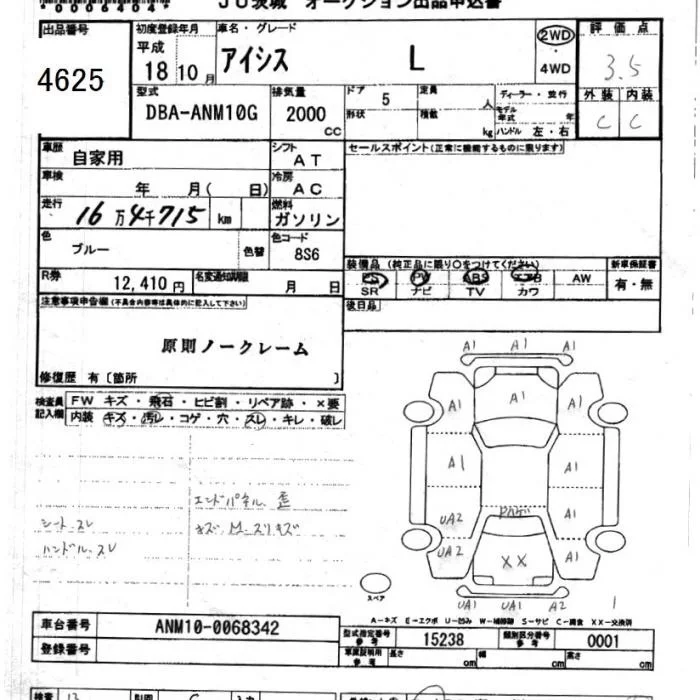 00064040
JU茨城 オークション出品申込書
出品番号
4625
初度登録年月
平成
18 10月
車名・グレード
アイシス L
2WD
4WD
評価点
3.5
外装 内装
C C
型式
DBA-ANM10G
排気量
2000
CC
ドア 5
形状
定員
人
積載
kg
ディーラー・並行
モデル年式 年
ハンドル 左・右
車歴
自家用
シフト
AT
車検
年 月( 日)
冷房
AC
走行
16万4千715 km
燃料
ガソリン
色
ブルー
色替
色コード
8S6
R券
12,410円
名変通知期限
月 日
セールスポイント(正常に機能するものに限ります)
装備品(純正品に限り○をつけてください)
PS PW ABS エアB AW
SR ナビ TV カワ
新車保証書
有・無
後日品
注意事項申告欄(不具合内容等は具体的に記入して下さい)
原則ノークレーム
修復歴 有〔箇所 〕
検査員記入欄
FW キズ・飛石・ヒビ割・リペア跡・×要
内装 キズ・汚レ・コゲ・穴・スレ・キレ・破レ
エンドパネル 歪
シート スレ
ハンドル スレ
A1 A1 A1
A1 A1 A1
A1 A1
UA2 A1
UA2 XX A1
UA1 UA1 A2
スペア
1
A-キズ E-エクボ U-凹み W-補修跡 S-サビ C-腐食 XX-交換済
車台番号
ANM10-0068342
登録番号
型式指定番号
参考
15238
類別区分番号
参考
0001
車庫証明用
参考
長さ cm
幅 cm
高さ cm
検査